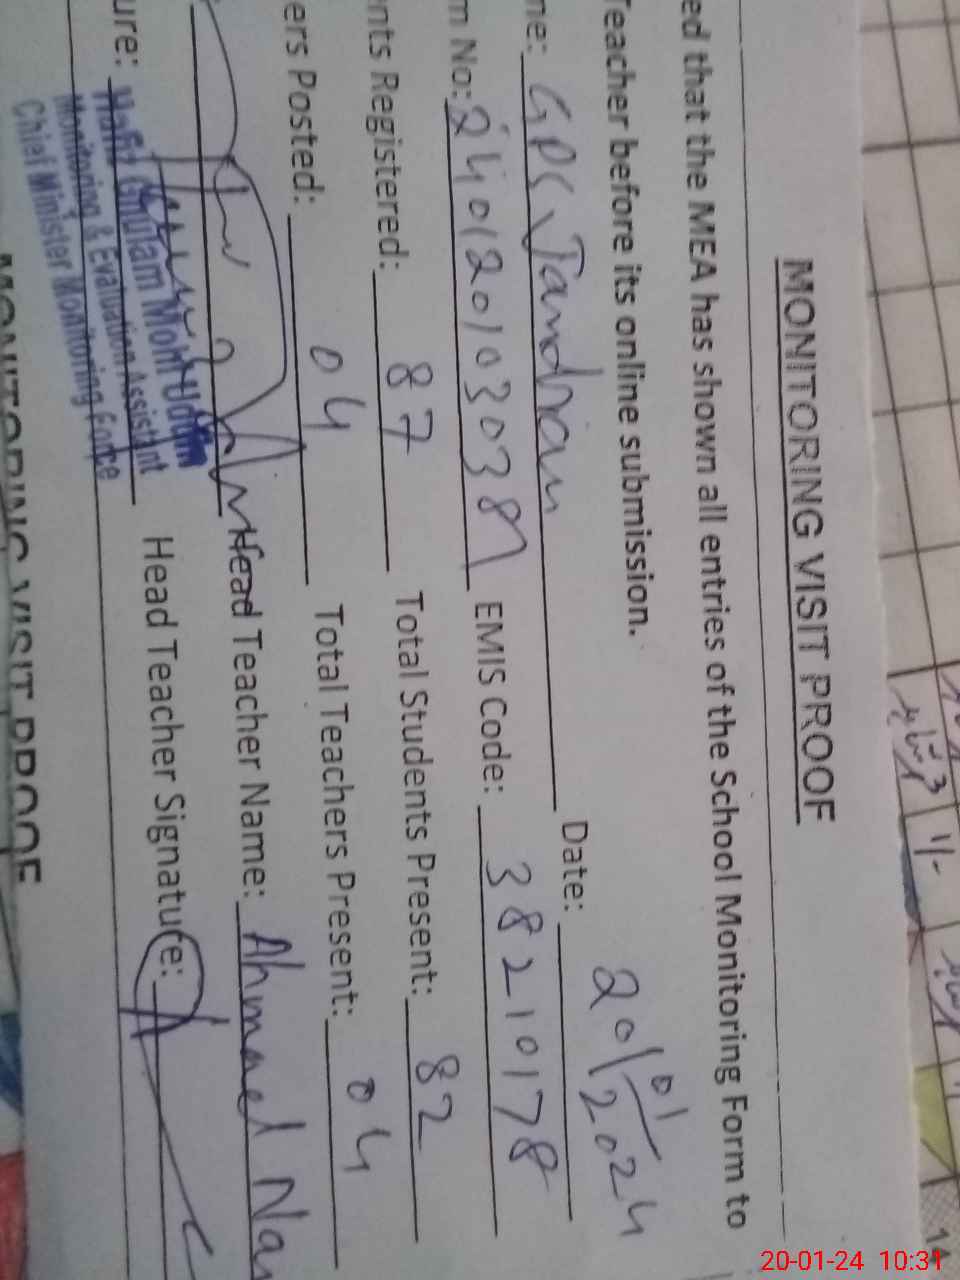 MONITORING VISIT PROOF
ed that the MEA has shown all entries of the School Monitoring Form to
Teacher before its online submission.
me: GPS Jandran Date: 20/01/2024
m No: EMIS Code: 38210178
nts Registered: 87 Total Students Present: 82
ers Posted: 04 Total Teachers Present: 04
Head Teacher Name: Ahmad Na
ure: Head Teacher Signature:
Hafiz Ghulam Mohi Uddin
Monitoring & Evaluation Assistant
Chief Minister Monitoring Force
MONITORING VISIT PROOF
1/-
14
20-01-24 10:31